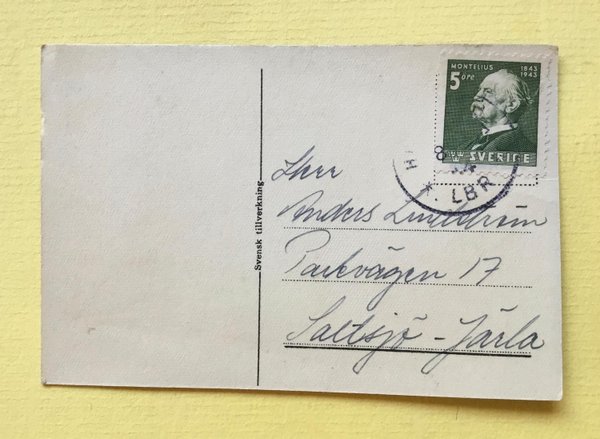 MONTELIUS 1843
1943
5 öre
SVERIGE
8
LBR
Svensk tillverkning
Herr
Anders Lindström
Parkvägen 17
Saltsjö-Järla